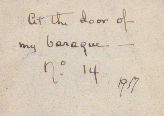 At the door of
my baraque —
No. 14
1917